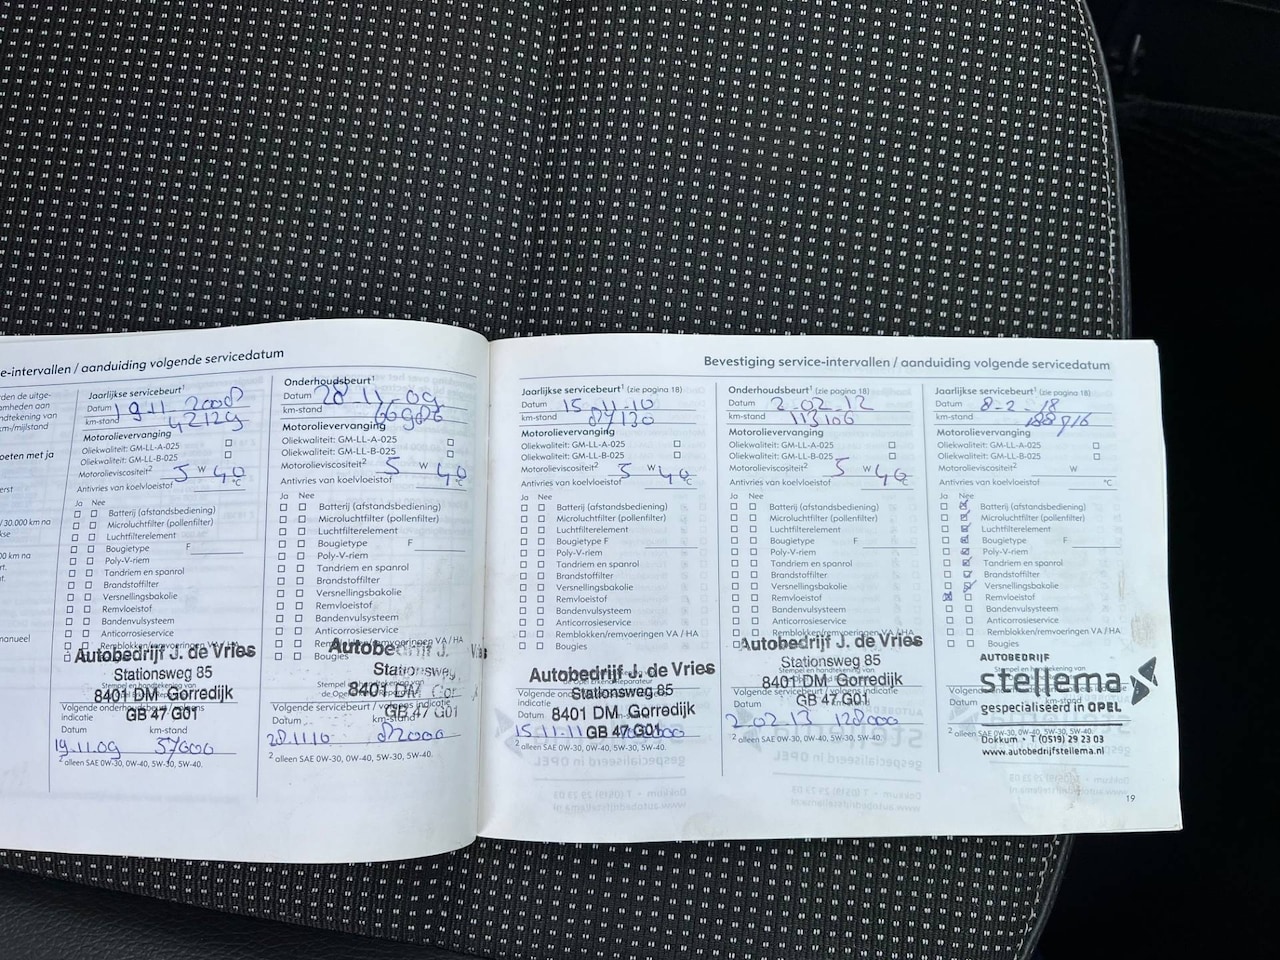 e-intervallen / aanduiding volgende servicedatum
rden de uitge-
amheden aan
ndtekening van
km-/mijlstand
oeten met ja
erst
/ 30.000 km na
kse
00 km na
rt.
anueel
Jaarlijkse servicebeurt¹
Datum 19.11.2008
km-stand 42129
Motorolievervanging
Oliekwaliteit: GM-LL-A-025
Oliekwaliteit: GM-LL-B-025
Motorolieviscositeit² 5 W 40
Antivries van koelvloeistof °C
Ja Nee
Batterij (afstandsbediening)
Microluchtfilter (pollenfilter)
Luchtfilterelement
Bougietype F
Poly-V-riem
Tandriem en spanrol
Brandstoffilter
Versnellingsbakolie
Remvloeistof
Bandenvulsysteem
Anticorrosieservice
Remblokken/remvoeringen VA / HA
Autobedrijf J. de Vries
Stationsweg 85
8401 DM Gorredijk
GB 47 G01
Volgende onderhoudsbeurt / volgens
indicatie
Datum km-stand
19.11.09 57000
² alleen SAE 0W-30, 0W-40, 5W-30, 5W-40.
Onderhoudsbeurt¹
Datum 28-11-09
km-stand
Motorolievervanging
Oliekwaliteit: GM-LL-A-025
Oliekwaliteit: GM-LL-B-025
Motorolieviscositeit² 5 W 40
Antivries van koelvloeistof °C
Ja Nee
Batterij (afstandsbediening)
Microluchtfilter (pollenfilter)
Luchtfilterelement
Bougietype F
Poly-V-riem
Tandriem en spanrol
Brandstoffilter
Versnellingsbakolie
Remvloeistof
Bandenvulsysteem
Anticorrosieservice
Remblokken/remvoeringen VA / HA
Bougies
Autobe
Stationsweg
8401 DM Gor
GB 47 G01
Volgende servicebeurt / volgens indicatie
Datum km-stand
28.11.10 82000
² alleen SAE 0W-30, 0W-40, 5W-30, 5W-40.
Bevestiging service-intervallen / aanduiding volgende servicedatum
Jaarlijkse servicebeurt¹ (zie pagina 18)
Datum 15.11.10
km-stand 87130
Motorolievervanging
Oliekwaliteit: GM-LL-A-025
Oliekwaliteit: GM-LL-B-025
Motorolieviscositeit² 5 W 40
Antivries van koelvloeistof °C
Ja Nee
Batterij (afstandsbediening)
Microluchtfilter (pollenfilter)
Luchtfilterelement
Bougietype F
Poly-V-riem
Tandriem en spanrol
Brandstoffilter
Versnellingsbakolie
Remvloeistof
Bandenvulsysteem
Anticorrosieservice
Remblokken/remvoeringen VA / HA
Bougies
Autobedrijf J. de Vries
Stationsweg 85
8401 DM Gorredijk
GB 47 G01
Volgende
indicatie
Datum
15.11.11
² alleen SAE 0W-30, 0W-40, 5W-30, 5W-40.
Onderhoudsbeurt¹ (zie pagina 18)
Datum 2-02-12
km-stand 113106
Motorolievervanging
Oliekwaliteit: GM-LL-A-025
Oliekwaliteit: GM-LL-B-025
Motorolieviscositeit² 5 W 40
Antivries van koelvloeistof °C
Ja Nee
Batterij (afstandsbediening)
Microluchtfilter (pollenfilter)
Luchtfilterelement
Bougietype F
Poly-V-riem
Tandriem en spanrol
Brandstoffilter
Versnellingsbakolie
Remvloeistof
Bandenvulsysteem
Anticorrosieservice
Remblokken/remvoeringen VA / HA
Autobedrijf J. de Vries
Stationsweg 85
8401 DM Gorredijk
GB 47 G01
Volgende servicebeurt / volgens indicatie
Datum km-stand
2.02.13 128000
² alleen SAE 0W-30, 0W-40, 5W-30, 5W-40.
Jaarlijkse servicebeurt¹ (zie pagina 18)
Datum 8-2-18
km-stand
Motorolievervanging
Oliekwaliteit: GM-LL-A-025
Oliekwaliteit: GM-LL-B-025
Motorolieviscositeit² W
Antivries van koelvloeistof °C
Ja Nee
Batterij (afstandsbediening)
Microluchtfilter (pollenfilter)
Luchtfilterelement
Bougietype F
Poly-V-riem
Tandriem en spanrol
Brandstoffilter
Versnellingsbakolie
Remvloeistof
Bandenvulsysteem
Anticorrosieservice
Remblokken/remvoeringen VA / HA
Bougies
AUTOBEDRIJF
stellema
gespecialiseerd in OPEL
² alleen SAE 0W-30, 0W-40, 5W-30, 5W-40.
Dokkum • T (0519) 29 23 03
www.autobedrijfstellema.nl
19